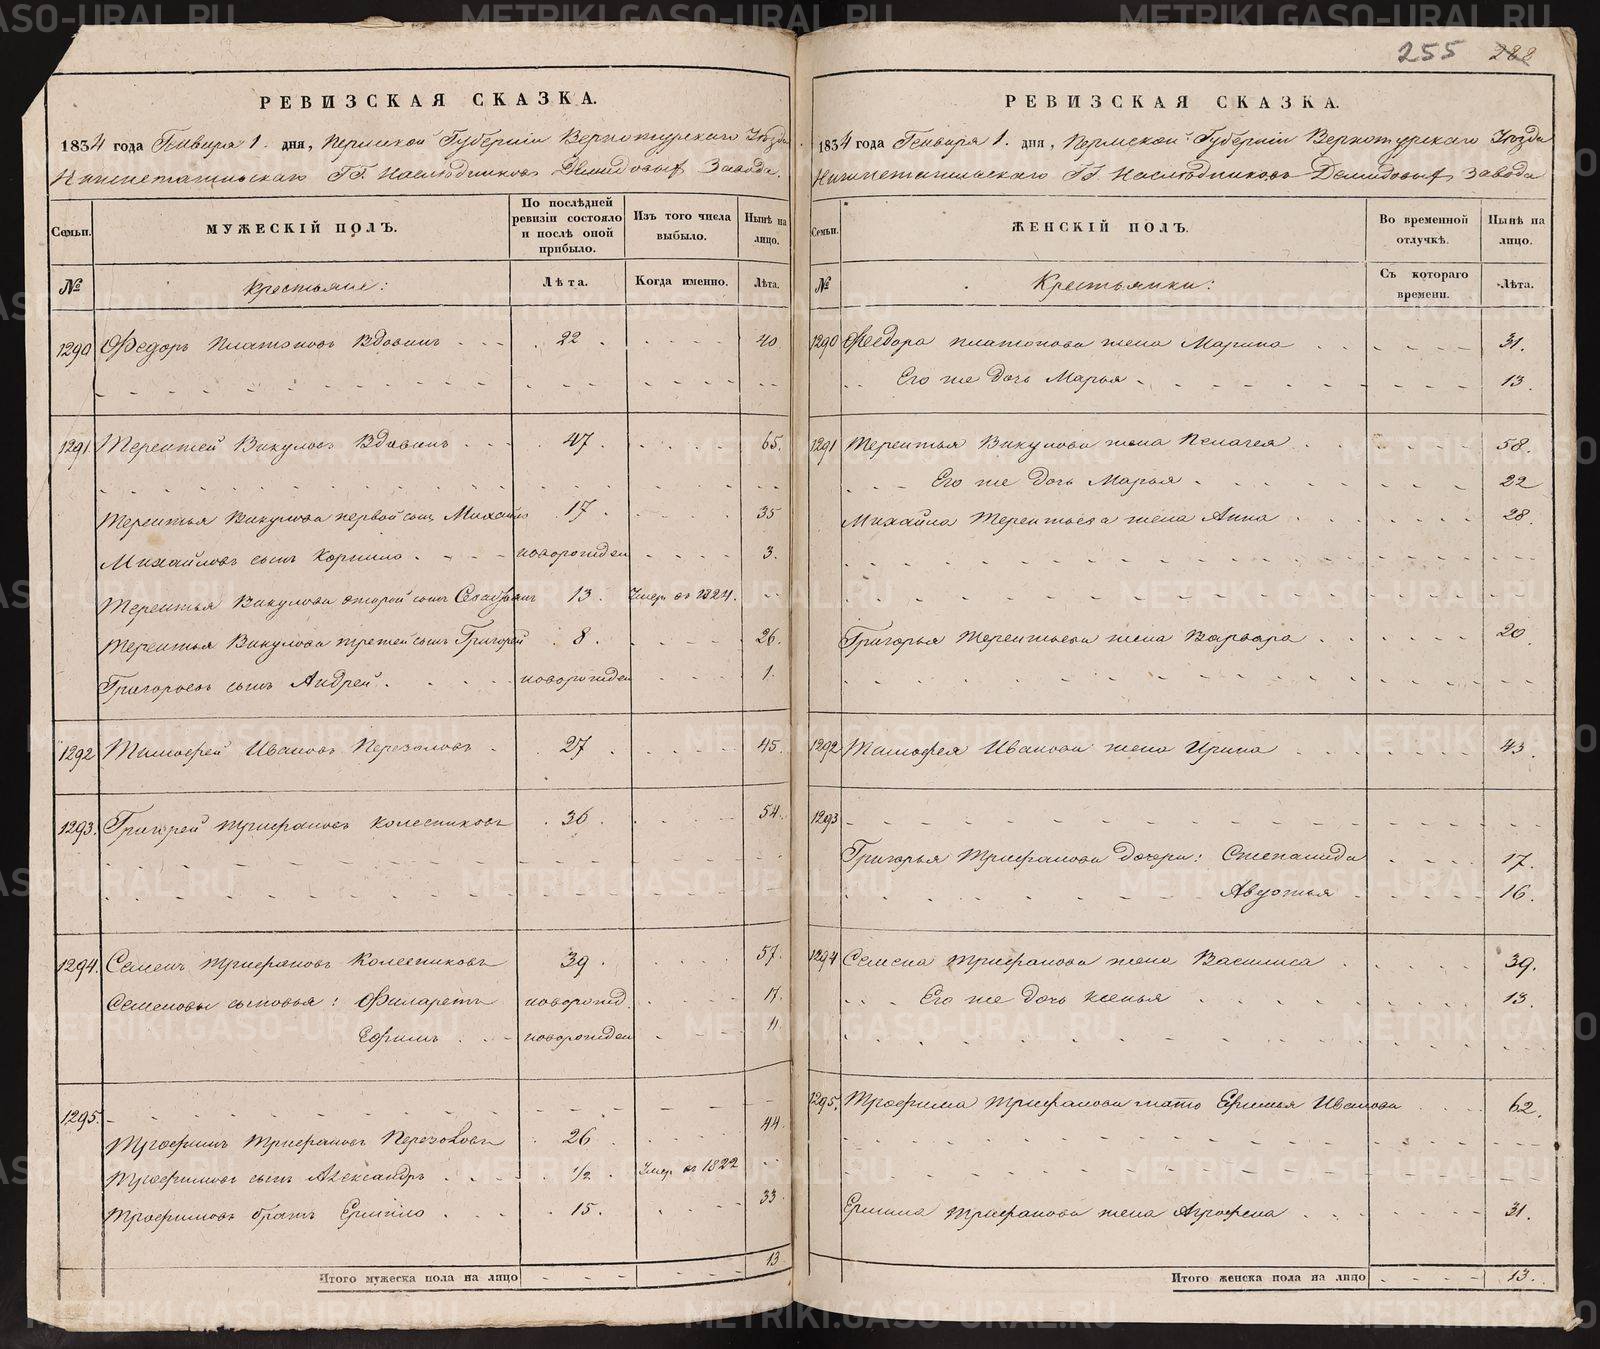 255 288
РЕВИЗСКАЯ СКАЗКА.
1834 года Генваря 1. дня, Пермской Губерніи Верхотурскаго Уѣзда
Нижнетагильскаго ГГ. Наслѣдниковъ Демидовыхъ Завода.
Семьи.
МУЖЕСКІЙ ПОЛЪ.
По послѣдней ревизіи состояло и послѣ оной прибыло.
Изъ того числа выбыло.
Нынѣ на лицо.
№
Крестьяне:
Лѣта.
Когда именно.
Лѣта.
1290 Федоръ Платоновъ Вдовинъ 22 40
1291 Терентей Викуловъ Вдовинъ 47 65.
Терентья Викулова первой сынъ Михайло 17 35
Михайловъ сынъ Корнило новорожден 3.
Терентья Викулова второй сынъ 13. Умер въ 1824.
Терентья Викулова третей сынъ Григорей 8. 26.
Григорьевъ сынъ Андрей новорожден 1.
1292 Тимофей Ивановъ Перезоловъ 27 45.
1293. Григорей Трифановъ Колесниковъ 36 54.
1294. Семенъ Трифановъ Колесниковъ 39 57.
Семеновы сыновья: Филаретъ новорожд. 17.
Ефимъ новорожден 11
1295.
Трофимъ Трифановъ Перезоловъ 26 44.
Трофимовъ сынъ Александръ 1/2 Умер въ 1822
Трофимовъ братъ Ермило 15. 33
Итого мужеска пола на лицо 13
РЕВИЗСКАЯ СКАЗКА.
1834 года Генваря 1. дня, Пермской Губерніи Верхотурскаго Уѣзда
Нижнетагильскаго ГГ. Наслѣдниковъ Демидовыхъ Завода
Семьи.
ЖЕНСКІЙ ПОЛЪ.
Во временной отлучкѣ.
Нынѣ на лицо.
№
Крестьянки:
Съ котораго времени.
Лѣта.
1290 Федора Платонова жена Марина 31.
Его же дочь Марья 13.
1291 Терентья Викулова жена Пелагея 58.
Его же дочь Марья 22
Михайла Терентьева жена Анна 28.
Григорья Терентьева жена Варвара 20.
1292 Тимофея Иванова жена Ирина 43
1293
Григорья Трифанова дочери: Степанида 17.
Авдотья 16.
1294 Семена Трифанова жена Василиса 39.
Его же дочь Ксенья 13.
1295. Трофима Трифанова мать Ефимья Иванова 62.
Ермила Трифанова жена Агрофена 31.
Итого женска пола на лицо 13.
METRIKI.GASO-URAL.RU